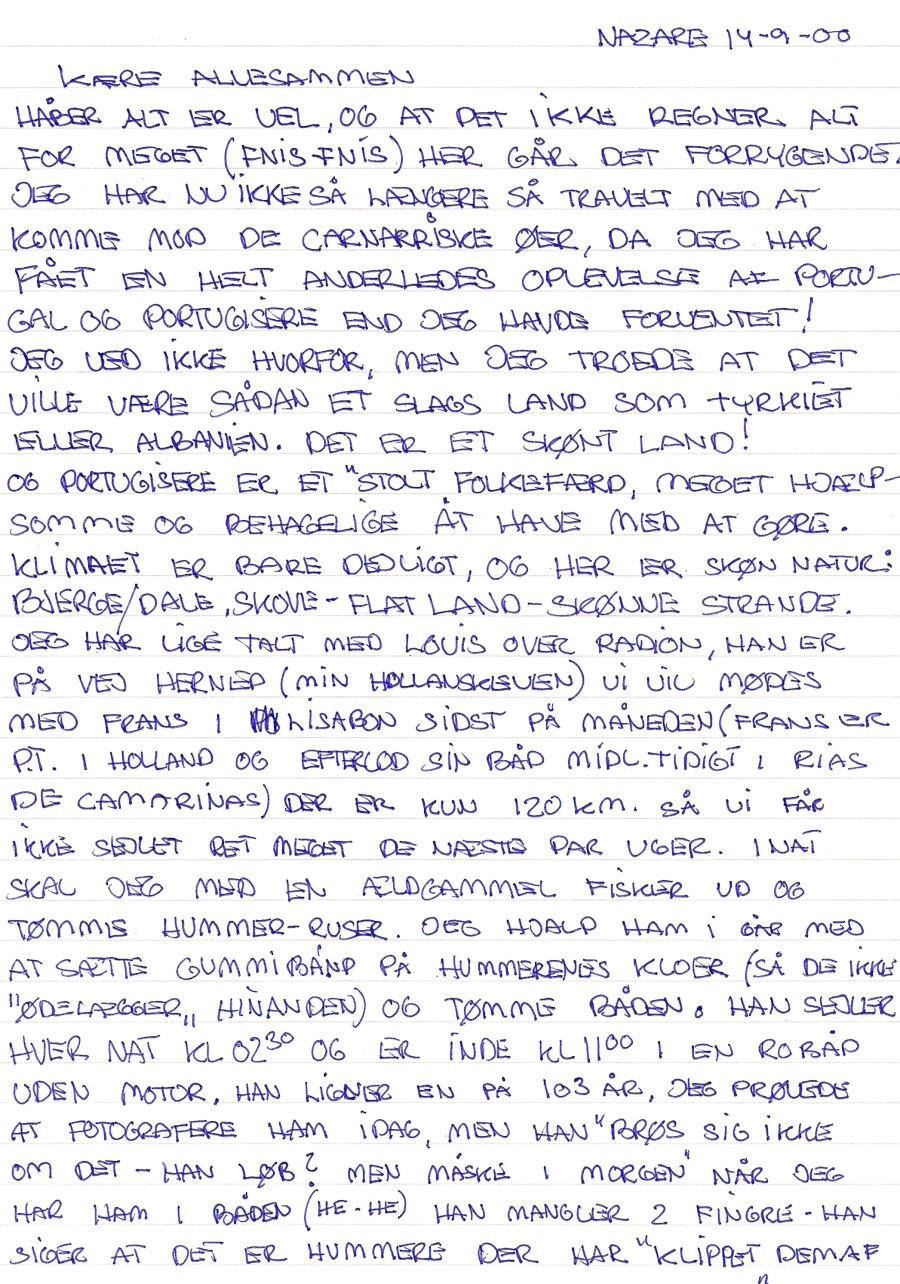 NAZARE 14-9-00
KÆRE ALLESAMMEN
HÅBER ALT ER VEL, OG AT DET IKKE REGNER ALT
FOR MEGET (FNIS-FNIS) HER GÅR DET FORRYGENDE.
JEG HAR NU IKKE SÅ LÆNGERE SÅ TRAVLT MED AT
KOMME MOD DE CARNARRISKE ØER, DA JEG HAR
FÅET EN HELT ANDERLEDES OPLEVELSE AF PORTU-
GAL OG PORTUGISERE END JEG HAVDE FORVENTET!
JEG VED IKKE HVORFOR, MEN JEG TROEDE AT DET
VILLE VÆRE SÅDAN ET SLAGS LAND SOM TYRKIET
ELLER ALBANIEN. DET ER ET SKØNT LAND!
OG PORTUGISERE ER ET "STOLT FOLKEFÆRD, MEGET HJÆLP-
SOMME OG BEHAGELIGE AT HAVE MED AT GØRE.
KLIMAET ER BARE DEJLIGT, OG HER ER SKØN NATUR:
BJERGE/DALE, SKOVE - FLAT LAND - SKØNNE STRANDE.
JEG HAR LIGE TALT MED LOUIS OVER RADION, HAN ER
PÅ VEJ HERNED (MIN HOLLANSKEVEN) VI VIL MØDES
MED FRANS I LISABON SIDST PÅ MÅNEDEN (FRANS ER
P.T. I HOLLAND OG EFTERLOD SIN BÅD MIDL.TIDIGT I RIAS
DE CAMARINAS) DER ER KUN 120 KM. SÅ VI FÅR
IKKE SEJLET RET MEGET DE NÆSTE PAR UGER. I NAT
SKAL JEG MED EN ÆLDGAMMEL FISKER UD OG
TØMME HUMMER-RUSER. JEG HJALP HAM I GÅR MED
AT SÆTTE GUMMIBÅND PÅ HUMMERENES KLOER (SÅ DE IKKE
"ØDELÆGGER" HINANDEN) OG TØMME BÅDEN. HAN SEJLER
HVER NAT KL 02³⁰ OG ER INDE KL 11⁰⁰ I EN ROBÅD
UDEN MOTOR, HAN LIGNER EN PÅ 103 ÅR, JEG PRØVEDE
AT FOTOGRAFERE HAM IDAG, MEN HAN "BRØS SIG IKKE
OM DET - HAN LØB? MEN MÅSKE I MORGEN" NÅR JEG
HAR HAM I BÅDEN (HE-HE) HAN MANGLER 2 FINGRE - HAN
SIGER AT DET ER HUMMERE DER HAR "KLIPPET DEM AF"